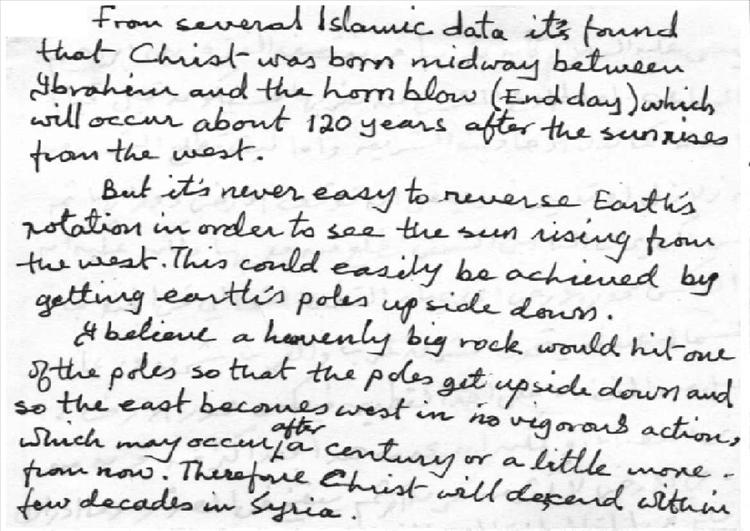 From several Islamic data it's found
that Christ was born midway between
Ibrahim and the horn blow (End day) which
will occur about 120 years after the sun rises
from the west.
But it's never easy to reverse Earth's
rotation in order to see the sun rising from
the west. This could easily be achieved by
getting earth's poles upside down.
I believe a heavenly big rock would hit one
of the poles so that the poles get upside down and
so the east becomes west in no vigorous action,
which may occur after a century or a little more
from now. Therefore Christ will descend within
few decades in Syria.